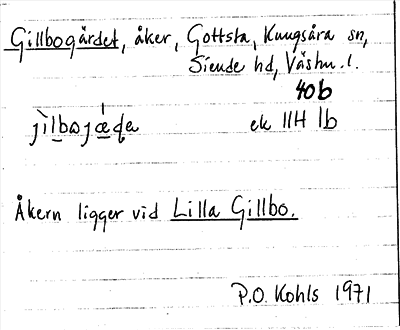 Gillbogärdet, åker, Gottsta, Kungsåra sn,
Siende hd, Västm. l.
40b
ek 11H 1b
Åkern ligger vid Lilla Gillbo.
P.O. Kohls 1971